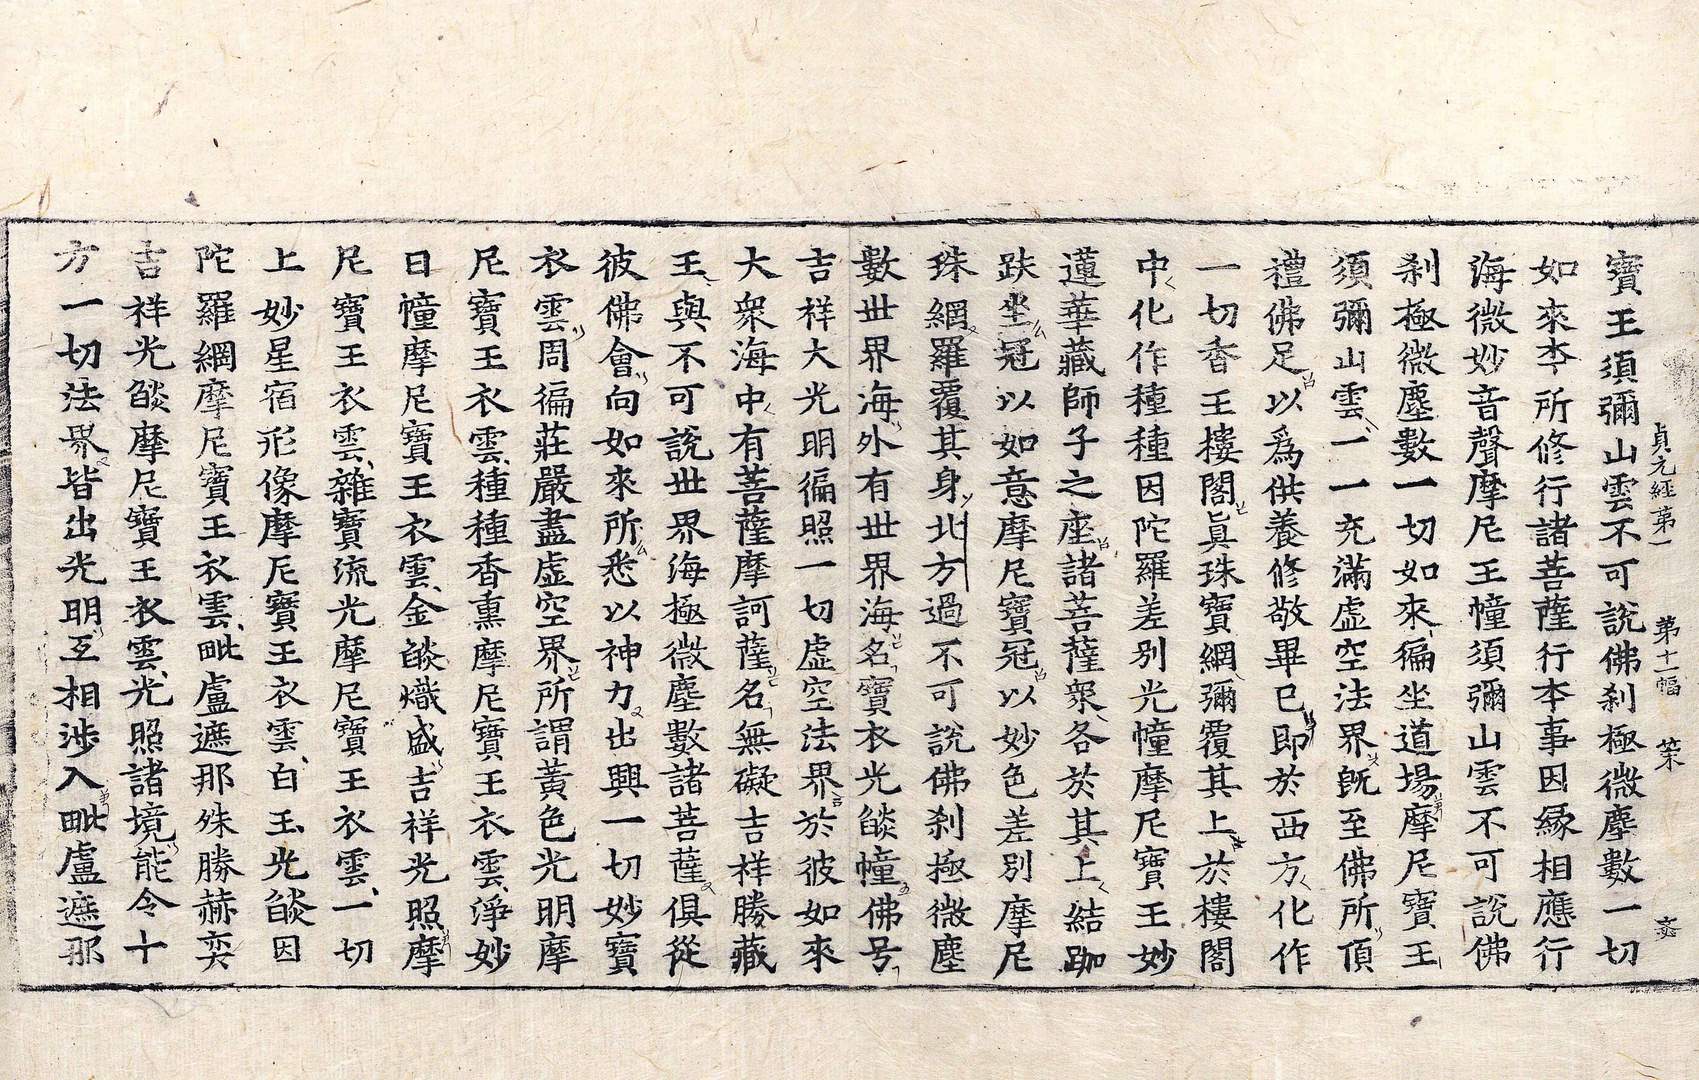 貞元經第一 第十二幅
寶王須彌山雲不可說佛刹極微塵數一切
如來夲所修行諸菩薩行本事因緣相應行
海微妙音聲摩尼王幢須彌山雲不可說佛
刹極微塵數一切如來徧坐道場摩尼寶王
須彌山雲一一充滿虛空法界旣至佛所頂
禮佛足以爲供養修敬畢已即於西方化作
一切香王樓閣眞珠寶網彌覆其上於樓閣
中化作種種因陀羅差别光幢摩尼寶王妙
蓮華藏師子之座諸菩薩衆各於其上結跏
趺坐冠以如意摩尼寶冠以妙色差别摩尼
珠網羅覆其身北方過不可說佛刹極微塵
數世界海外有世界海名寶衣光燄幢佛号
吉祥大光明徧照一切虛空法界於彼如來
大衆海中有菩薩摩訶薩名無礙吉祥勝藏
王與不可說世界海極微塵數諸菩薩俱從
彼佛會向如來所悉以神力出興一切妙寶
衣雲周徧莊嚴盡虛空界所謂黃色光明摩
尼寶王衣雲種種香熏摩尼寶王衣雲淨妙
日幢摩尼寶王衣雲金燄熾盛吉祥光照摩
尼寶王衣雲雜寶流光摩尼寶王衣雲一切
上妙星宿形像摩尼寶王衣雲白玉光燄因
陀羅網摩尼寶王衣雲毗盧遮那殊勝赫奕
吉祥光燄摩尼寶王衣雲光照諸境能令十
方一切法界皆出光明互相涉入毗盧遮那